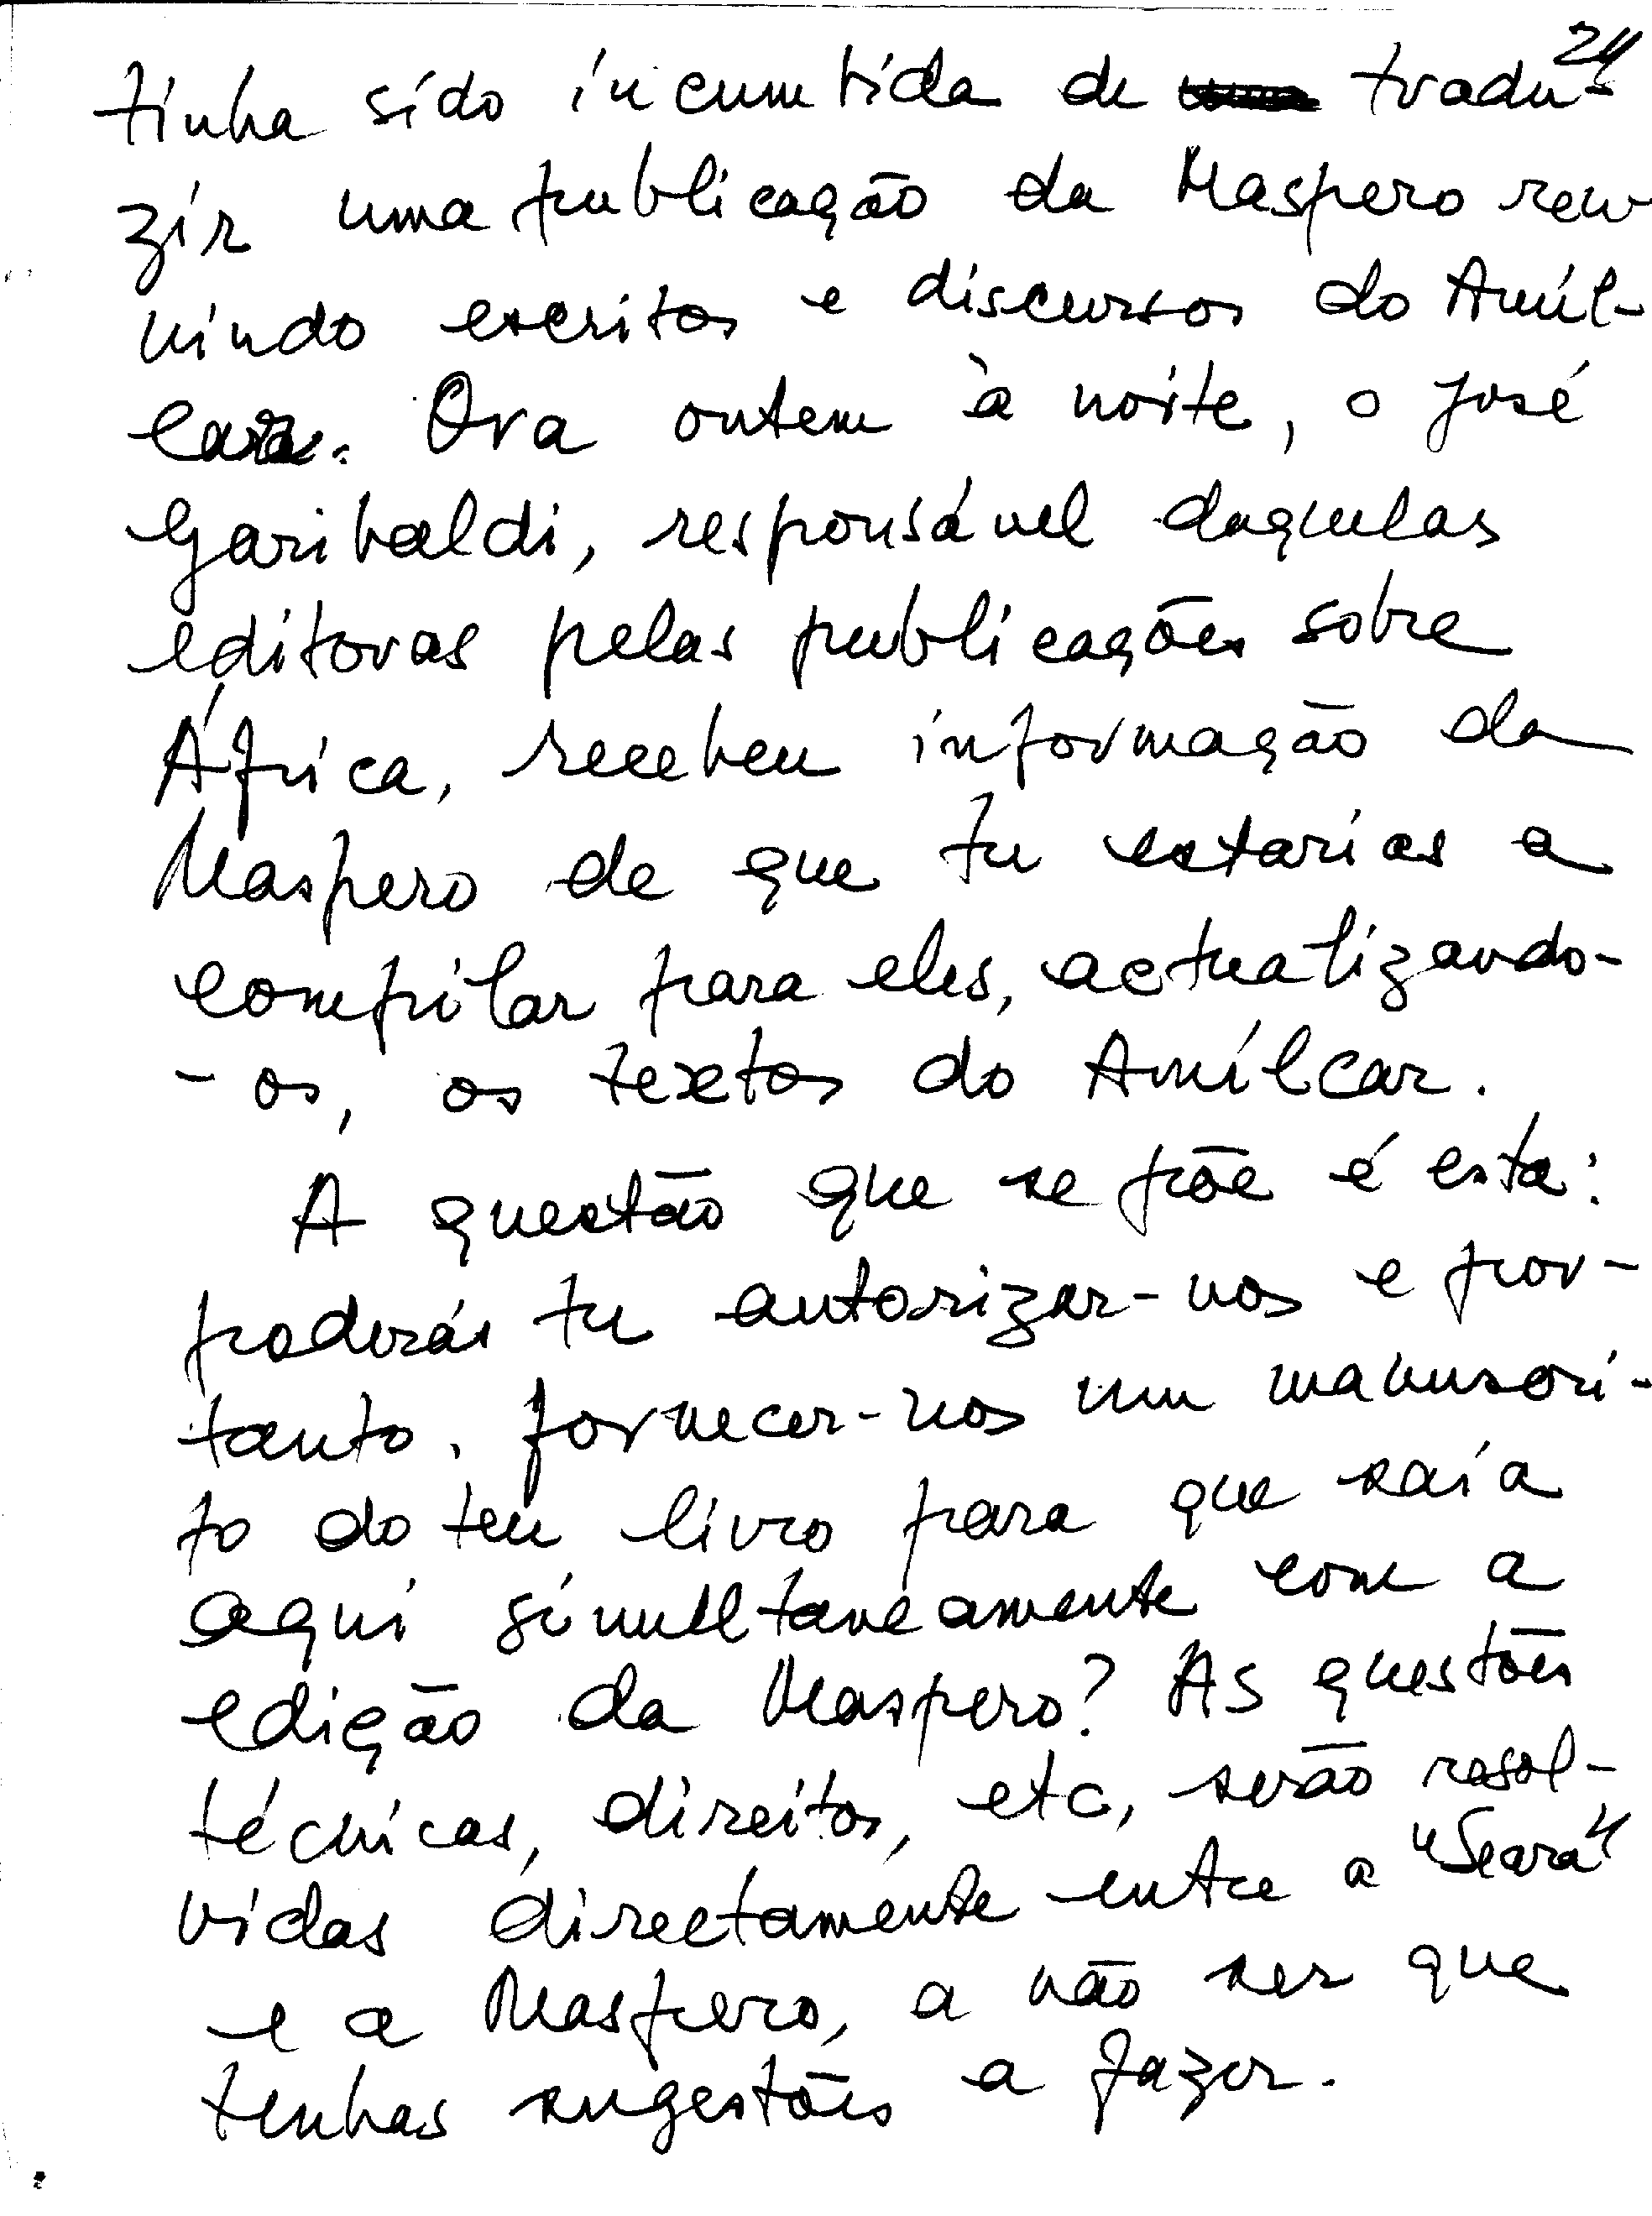 24
tinha sido incumbida de tradu-
zir uma publicação da Maspero reu-
nindo escritos e discursos do Amíl-
car. Ora ontem à noite, o José
Garibaldi, responsável daquelas
editoras pelas publicações sobre
África, recebeu informação da
Maspero de que tu estarias a
compilar para eles, actualizando-
-os, os textos do Amílcar.
A questão que se põe é esta:
poderás tu autorizar-nos e por-
tanto, fornecer-nos um manuscri-
to do teu livro para que saía
aqui simultaneamente com a
edição da Maspero? As questões
técnicas, direitos, etc, serão resol-
vidas directamente entre a "Seara"
e a Maspero, a não ser que
tenhas sugestões a fazer.